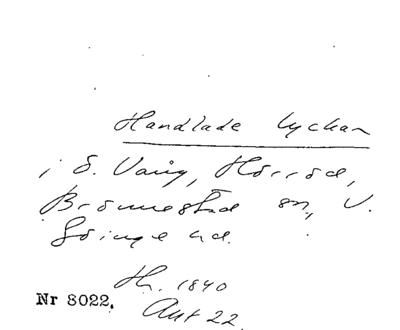 Handlade lyckan
i Ö. Vång, Hörröd,
Brönnestad sn, V.
Göinge hd.
H. 1840
Nr 8022. Ant 22